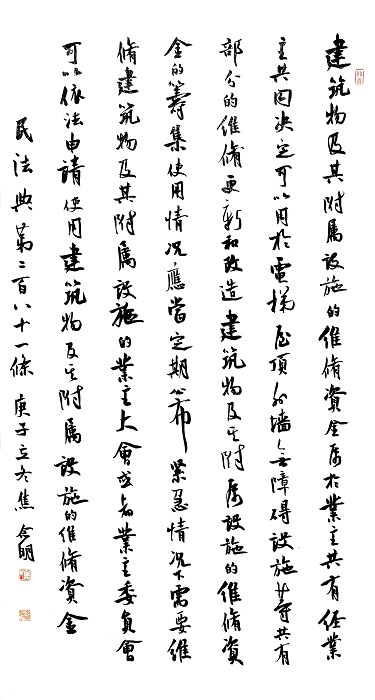 建筑物及其附属設施的維脩資金属於業主共有經業
主共同决定可以用於電梯屋頂外墙無障碍設施等共有
部分的維脩更新和改造建筑物及其附属設施的維脩資
金的籌集使用情况應當定期公布緊急情况下需要維
脩建筑物及其附属設施的業主大會或者業主委員會
可以依法申請使用建筑物及其附属設施的維脩資金
民法典第二百八十一條 庚子立冬焦